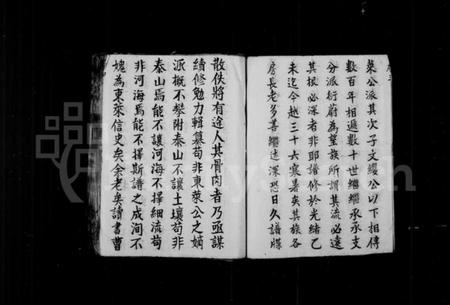 萊公派其次子文繼公以下相傳
數百年相遞數十世繼繼承承支
分派衍蔚為望族所謂其流必遠
其根必深者非耶譜修於光緒乙
未迄今越三十六寒暑矣其族各
房長老多善繼述深恐日久譜牒
散佚將有途人其骨肉者乃亟謀
續修勉力輯纂苟非東萊公之嫡
派概不攀附泰山不讓土壤苟非
泰山焉能不讓河海不擇細流苟
非河海焉能不擇斯譜之成洵不
愧為東萊信史矣余老矣讀書曹